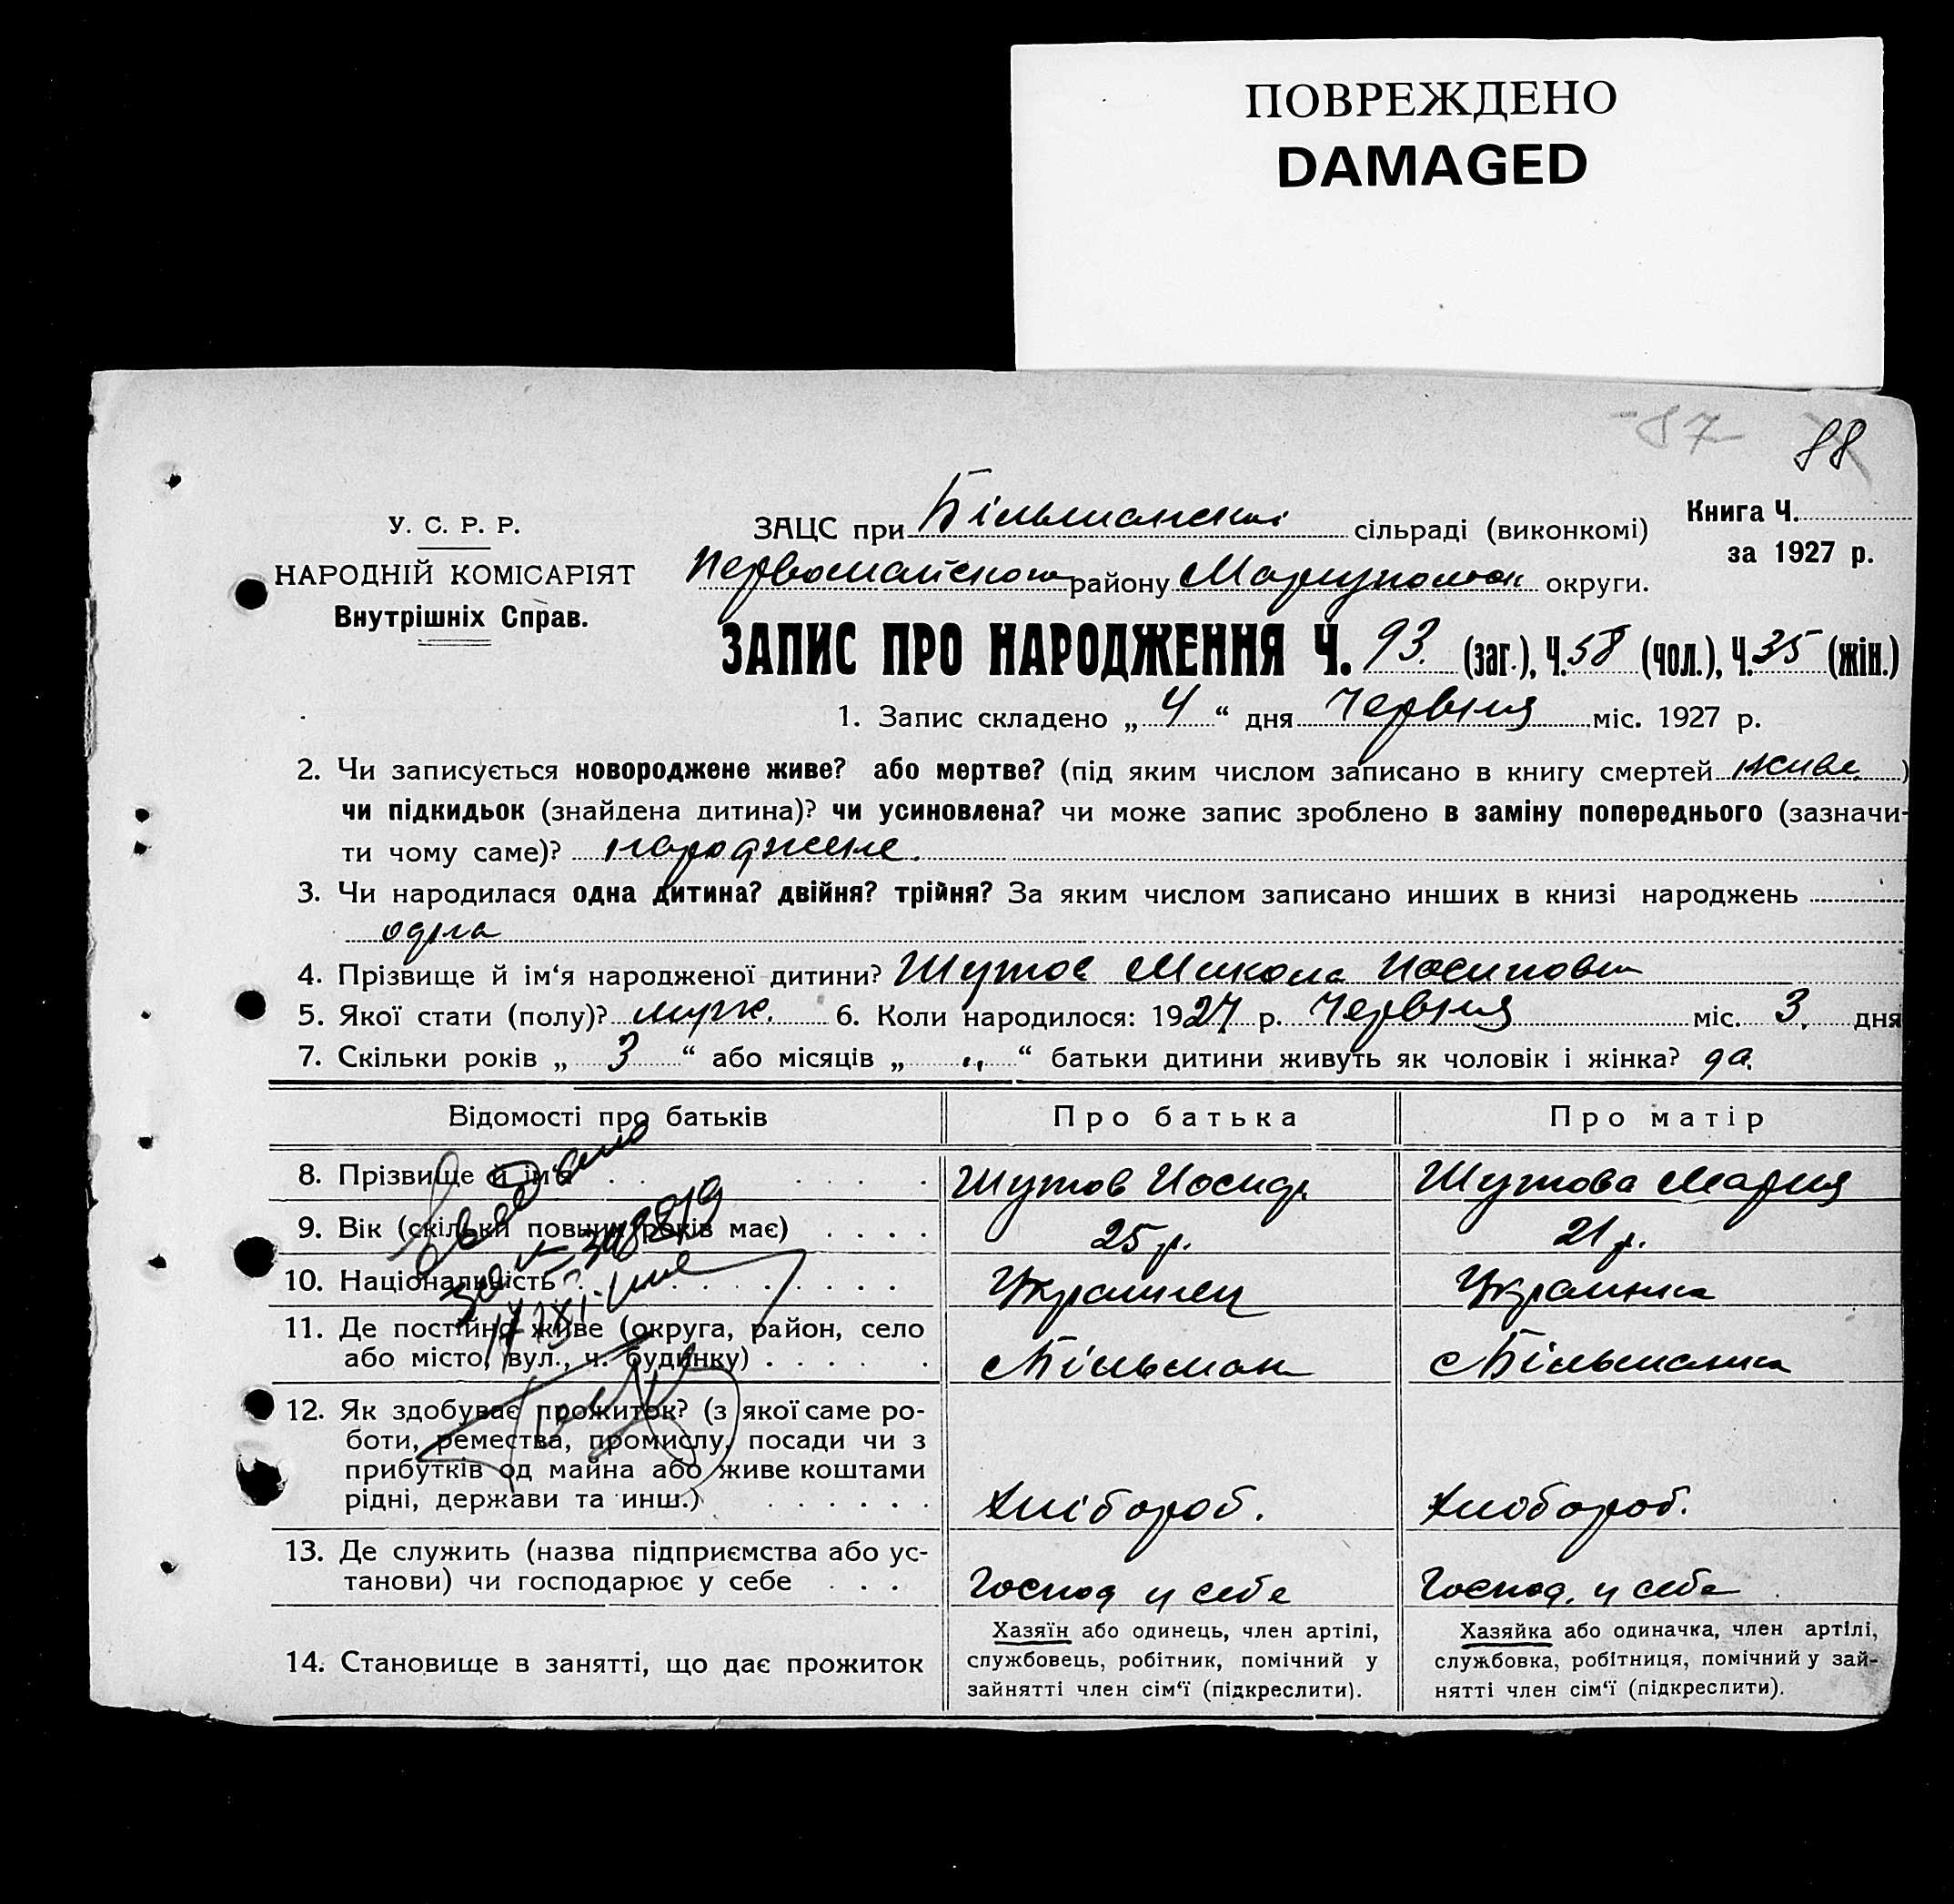 ПОВРЕЖДЕНО
DAMAGED
87 88
У. С. Р. Р.
НАРОДНІЙ КОМІСАРІЯТ
Внутрішніх Справ.
ЗАЦС при Більманській сільраді (виконкомі)
Книга Ч.
за 1927 р.
Первомайского району Маріупольск округи.
ЗАПИС ПРО НАРОДЖЕННЯ Ч. 93. (заг.), Ч. 58 (чол.), Ч. 35 (жін.)
1. Запис складено „ 4 “ дня Червня міс. 1927 р.
2. Чи записується новороджене живе? або мертве? (під яким числом записано в книгу смертей живе )
чи підкидьок (знайдена дитина)? чи усиновлена? чи може запис зроблено в заміну попереднього (зазначи-
ти чому саме)? народжене.
3. Чи народилася одна дитина? двійня? трійня? За яким числом записано инших в книзі народжень
одна
4. Прізвище й ім‘я народженої дитини? Шутов Микола Иосипович
5. Якої стати (полу)? муж. 6. Коли народилося: 1927 р. Червня міс. 3. дня
7. Скільки років „ 3 “ або місяців „ „ “ батьки дитини живуть як чоловік і жінка? да.
Відомості про батьків
Про батька
Про матір
8. Прізвище й ім‘я
Шутов Иосип
Шутова Мария
9. Вік (скільки повних років має)
25 р.
21 р.
10. Національність
Украинец
Украинка
11. Де постійно живе (округа, район, село
або місто, вул., ч. будинку)
с Більман
с Більманка
12. Як здобуває прожиток? (з якої саме ро-
боти, ремества, промислу, посади чи з
прибутків од майна або живе коштами
рідні, держави та инш.)
Хлібороб.
Хлібороб.
13. Де служить (назва підприємства або ус-
танови) чи господарює у себе
Господ у себе
Господ. у себе
14. Становище в занятті, що дає прожиток
Хазяїн або одинець, член артілі,
службовець, робітник, помічний у
зайнятті член сім‘ї (підкреслити).
Хазяйка або одиначка, член артілі,
службовка, робітниця, помічний у зай-
нятті член сім‘ї (підкреслити).